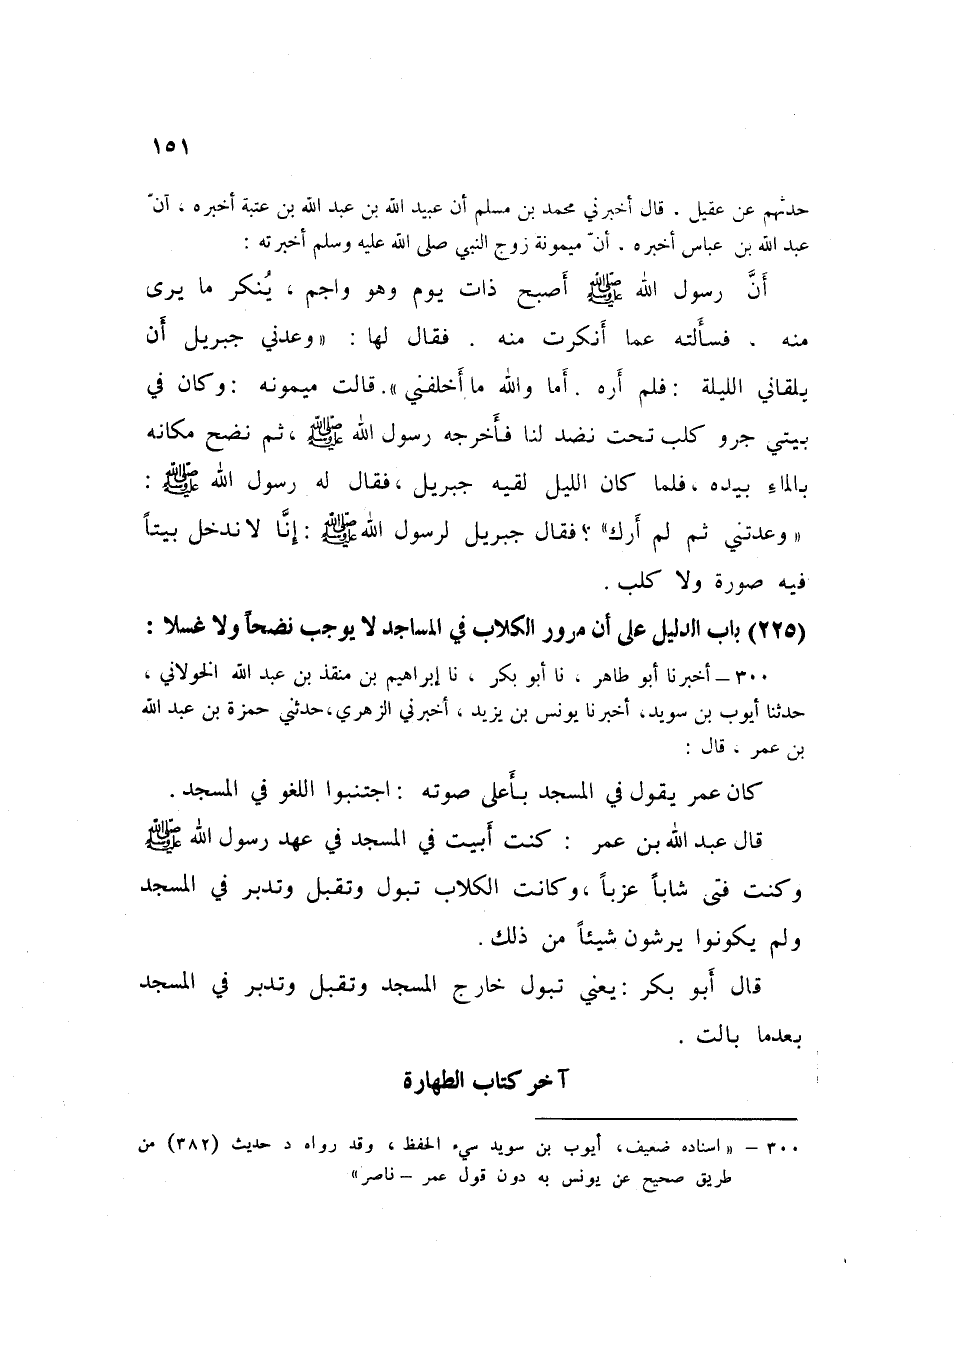 ١٥١
حدثهم عن عقيل . قال أخبرني محمد بن مسلم أن عبيد الله بن عبد الله بن عتبة أخبره ، أنّ
عبد الله بن عباس أخبره . أنّ ميمونة زوج النبي صلى الله عليه وسلم أخبرته :
أَنَّ رسول الله ﷺ أصبح ذات يوم وهو واجم ، يُنكر ما يرى
منه . فسألته عما أنكرت منه . فقال لها : « وعدني جبريل أن
يلقاني الليلة : فلم أره . أما والله ما أخلفني » . قالت ميمونه : وكان في
بيتي جرو كلب تحت نضد لنا فأخرجه رسول الله ﷺ ، ثم نضح مكانه
بالماء بيده ، فلما كان الليل لقيه جبريل ، فقال له رسول الله ﷺ :
« وعدتني ثم لم أرك » ؟ فقال جبريل لرسول الله ﷺ : إنَّا لا ندخل بيتاً
فيه صورة ولا كلب .
(٢٢٥) باب الدليل على أن مرور الكلاب في المساجد لا يوجب نضحاً ولا غسلا :
٣٠٠ – أخبرنا أبو طاهر ، نا أبو بكر ، نا إبراهيم بن منقذ بن عبد الله الخولاني ،
حدثنا أيوب بن سويد، أخبرنا يونس بن يزيد ، أخبرني الزهري، حدثني حمزة بن عبد الله
بن عمر ، قال :
كان عمر يقول في المسجد بأعلى صوته : اجتنبوا اللغو في المسجد .
قال عبد الله بن عمر : كنت أبيت في المسجد في عهد رسول الله ﷺ
وكنت فتى شاباً عزباً ، وكانت الكلاب تبول وتقبل وتدبر في المسجد
ولم يكونوا يرشون شيئاً من ذلك .
قال أبو بكر : يعني تبول خارج المسجد وتقبل وتدبر في المسجد
بعدما بالت .
آخر كتاب الطهارة
٣٠٠ – « اسناده ضعيف، أيوب بن سويد سيء الحفظ ، وقد رواه د حديث (٣٨٢) من
طريق صحيح عن يونس به دون قول عمر – ناصر »